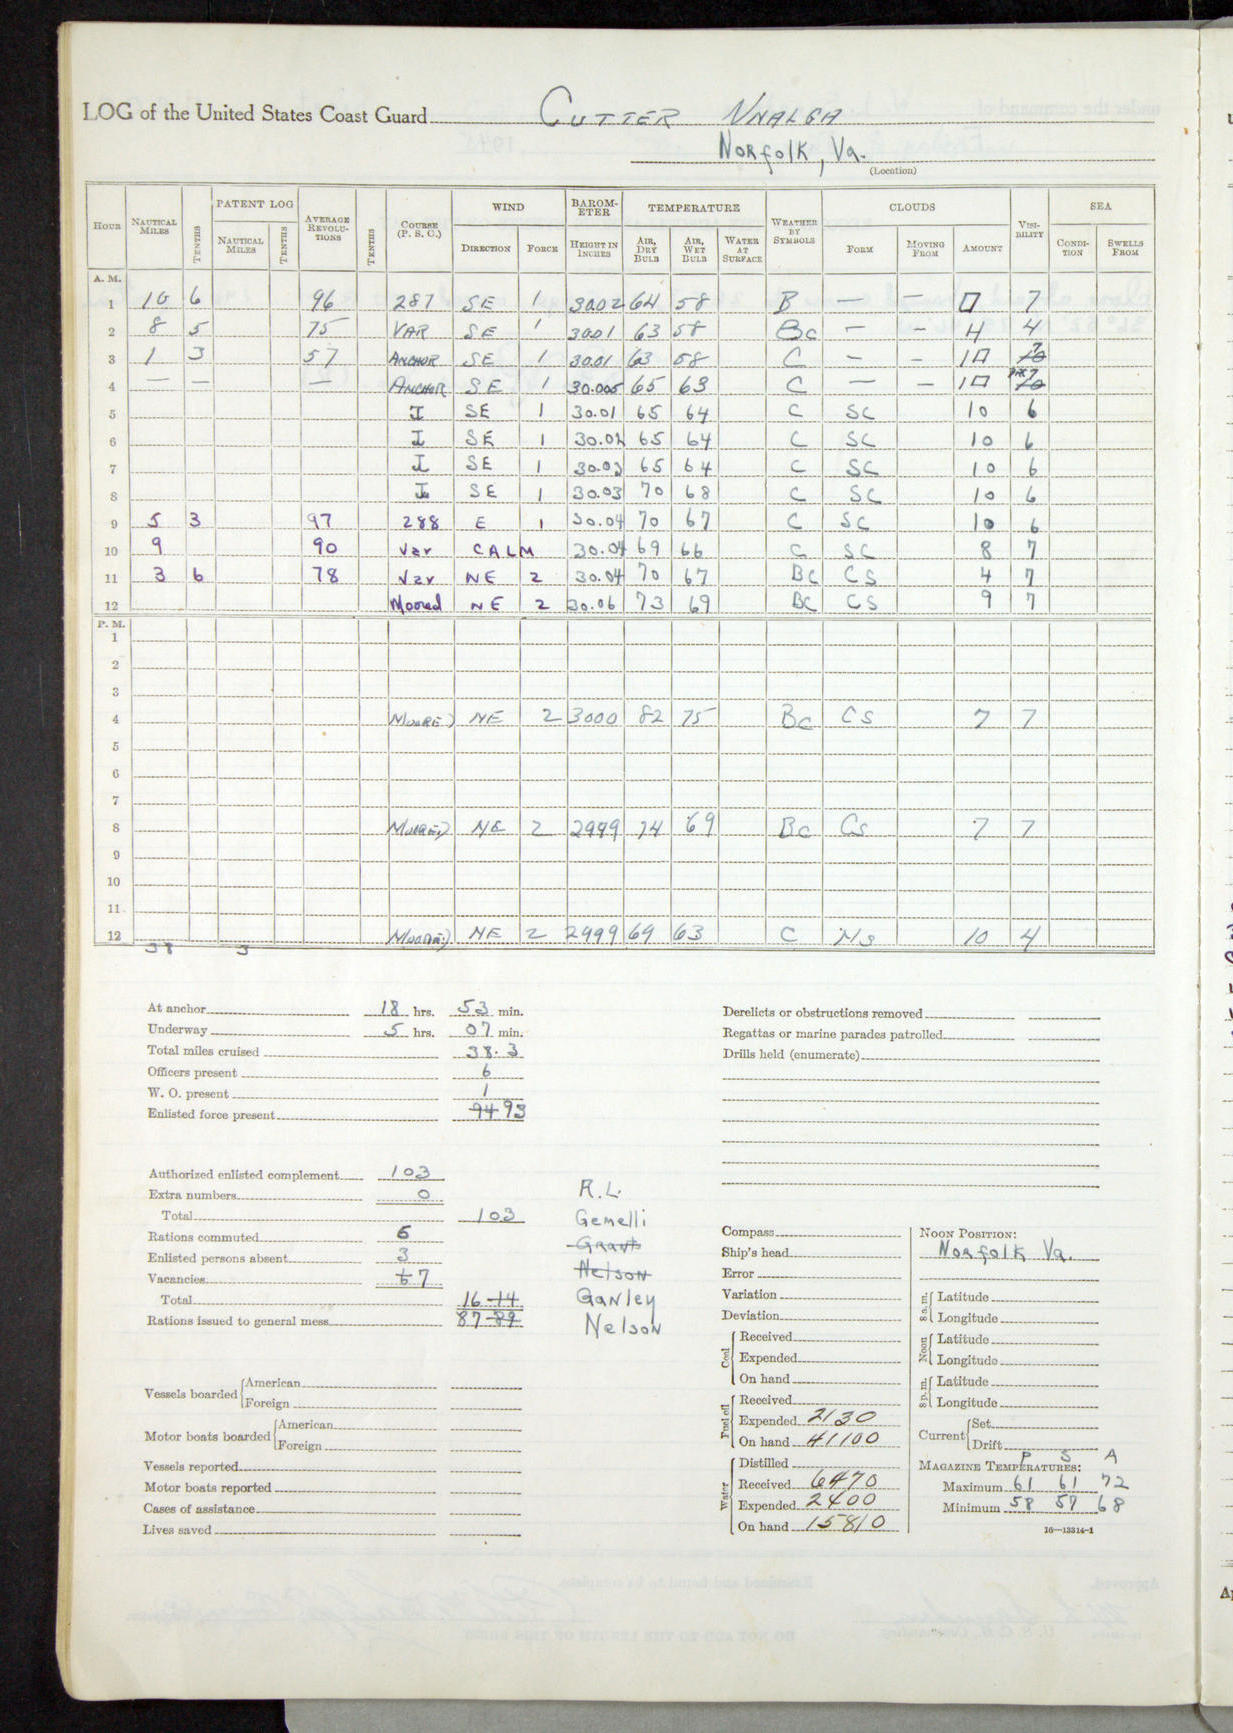 LOG of the United States Coast Guard CUTTER UNALGA
Norfolk, Va.
(Location)
HOUR NAUTICAL MILES TENTHS PATENT LOG NAUTICAL MILES TENTHS AVERAGE REVOLUTIONS TENTHS COURSE (P. S. C.) WIND DIRECTION FORCE BAROMETER HEIGHT IN INCHES TEMPERATURE AIR, DRY BULB AIR, WET BULB WATER AT SURFACE WEATHER BY SYMBOLS CLOUDS FORM MOVING FROM AMOUNT VISIBILITY SEA CONDITION SWELLS FROM
A. M.
1 10 6 96 287 SE 1 3002 64 58 B — — 0 7
2 8 5 75 VAR SE 1 3001 63 58 Bc — — 4 4
3 1 3 57 ANCHOR SE 1 30.01 63 58 C — — 10 7
4 — — — ANCHOR SE 1 30.005 65 63 C — — 10 7
5 I SE 1 30.01 65 64 C SC 10 6
6 I SE 1 30.02 65 64 C SC 10 6
7 I SE 1 30.03 65 64 C SC 10 6
8 I SE 1 30.03 70 68 C SC 10 6
9 5 3 97 288 E 1 30.04 70 67 C SC 10 6
10 9 90 Var CALM 30.04 69 66 C SC 8 7
11 3 6 78 Var NE 2 30.04 70 67 BC CS 4 7
12 Moored NE 2 30.06 73 69 BC CS 9 7
P. M.
1
2
3
4 MOORED NE 2 3000 82 75 Bc CS 7 7
5
6
7
8 MOORED NE 2 2999 74 69 Bc Cs 7 7
9
10
11
12 MOORED NE 2 2999 69 63 C Ns 10 4
38 3
At anchor 18 hrs. 53 min.
Underway 5 hrs. 07 min.
Total miles cruised 38.3
Officers present 6
W. O. present 1
Enlisted force present 94 93
Derelicts or obstructions removed
Regattas or marine parades patrolled
Drills held (enumerate)
Authorized enlisted complement 103
Extra numbers 0
Total 103
Rations commuted 6
Enlisted persons absent 3
Vacancies 6 7
Total 16 14
Rations issued to general mess 87 89
R.L.
Gemelli
Grant
Nelson
Ganley
Nelson
Vessels boarded American
Foreign
Motor boats boarded American
Foreign
Vessels reported
Motor boats reported
Cases of assistance
Lives saved
Compass
Ship's head
Error
Variation
Deviation
Coal Received
Expended
On hand
Fuel oil Received
Expended 2130
On hand 41100
Water Distilled
Received 6470
Expended 2400
On hand 15810
NOON POSITION:
Norfolk Va.
8 a. m. Latitude
Longitude
Noon Latitude
Longitude
8 p. m. Latitude
Longitude
Current Set
Drift
P S A
MAGAZINE TEMPERATURES:
Maximum 61 61 72
Minimum 58 57 68
16—13314-1